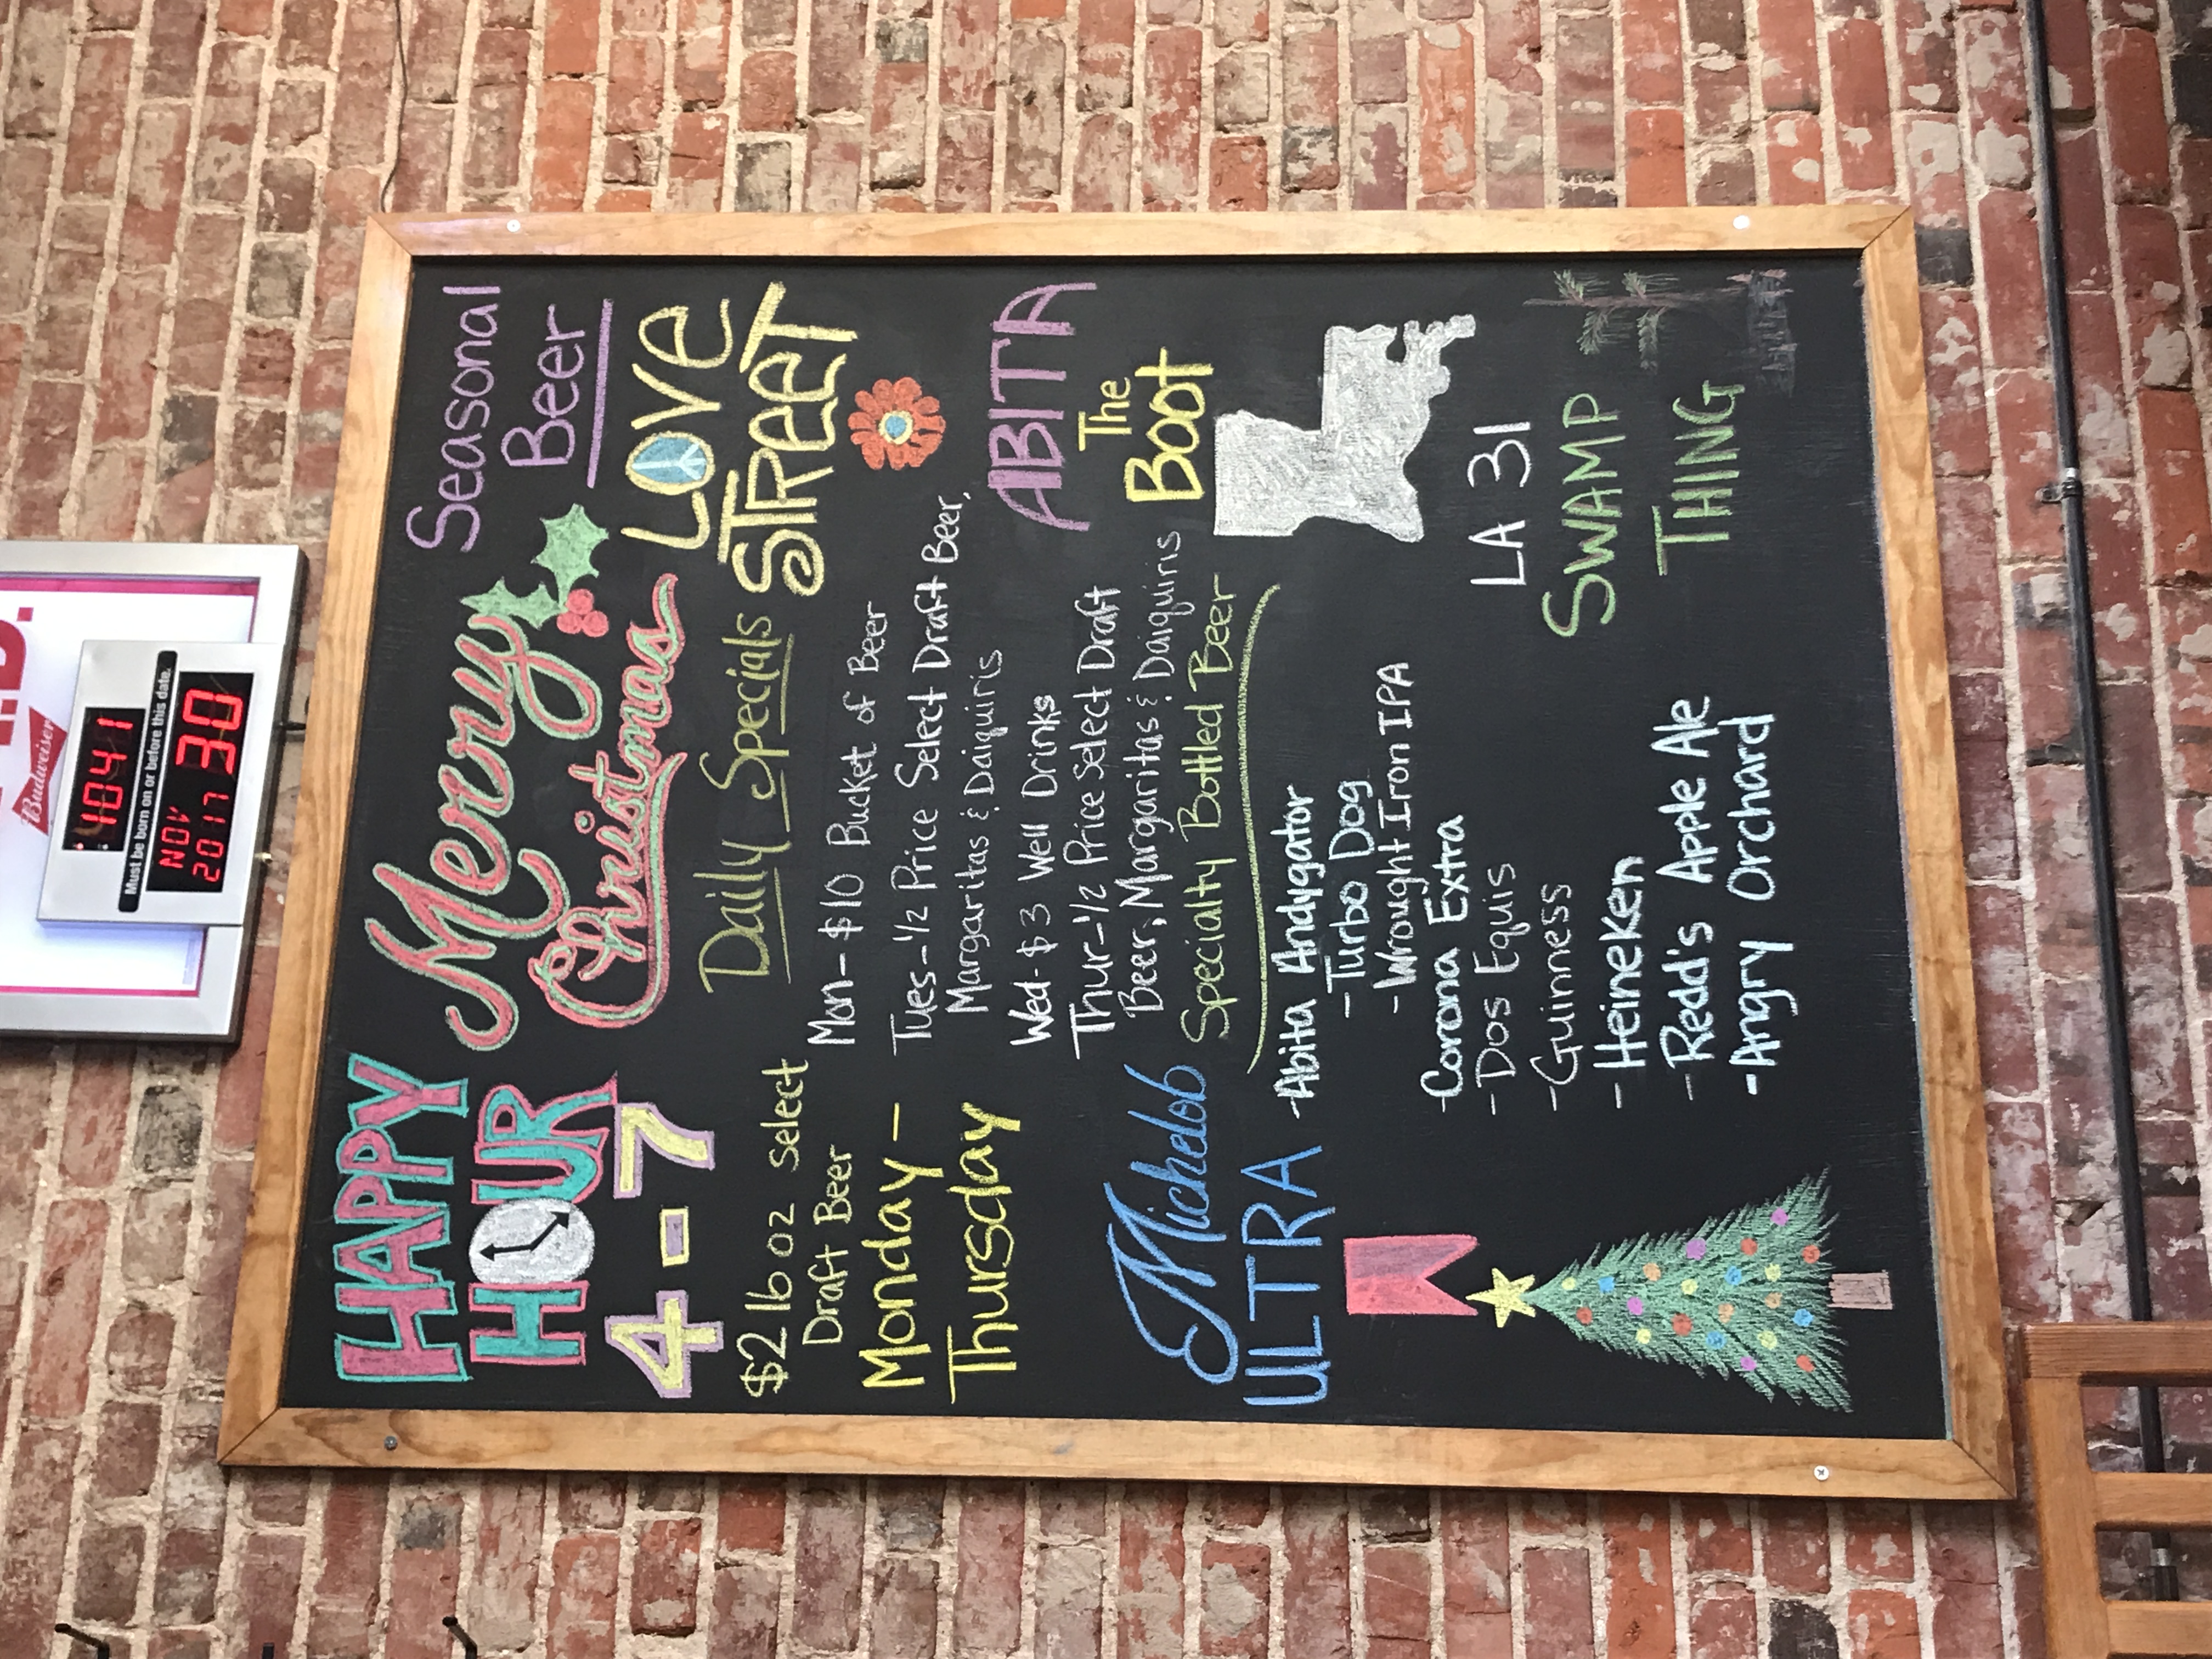 Budweiser
1041
Must be born on or before this date.
NOV
2017 30
HAPPY
HOUR
4-7
$2 16 oz select
Draft Beer
Monday -
Thursday
Michelob
ULTRA
Merry
Christmas
Daily Specials
Mon- $10 Bucket of Beer
Tues- 1/2 Price Select Draft Beer,
Margaritas & Daiquiris
Wed- $3 Well Drinks
Thur- 1/2 Price Select Draft
Beer, Margaritas & Daiquiris
Specialty Bottled Beer
-Abita Andygator
- Turbo Dog
- Wrought Iron IPA
- Corona Extra
- Dos Equis
- Guinness
- Heineken
- Redd's Apple Ale
- Angry Orchard
Seasonal
Beer
LOVE
STREET
ABITA
The
Boot
LA 31
SWAMP
THING